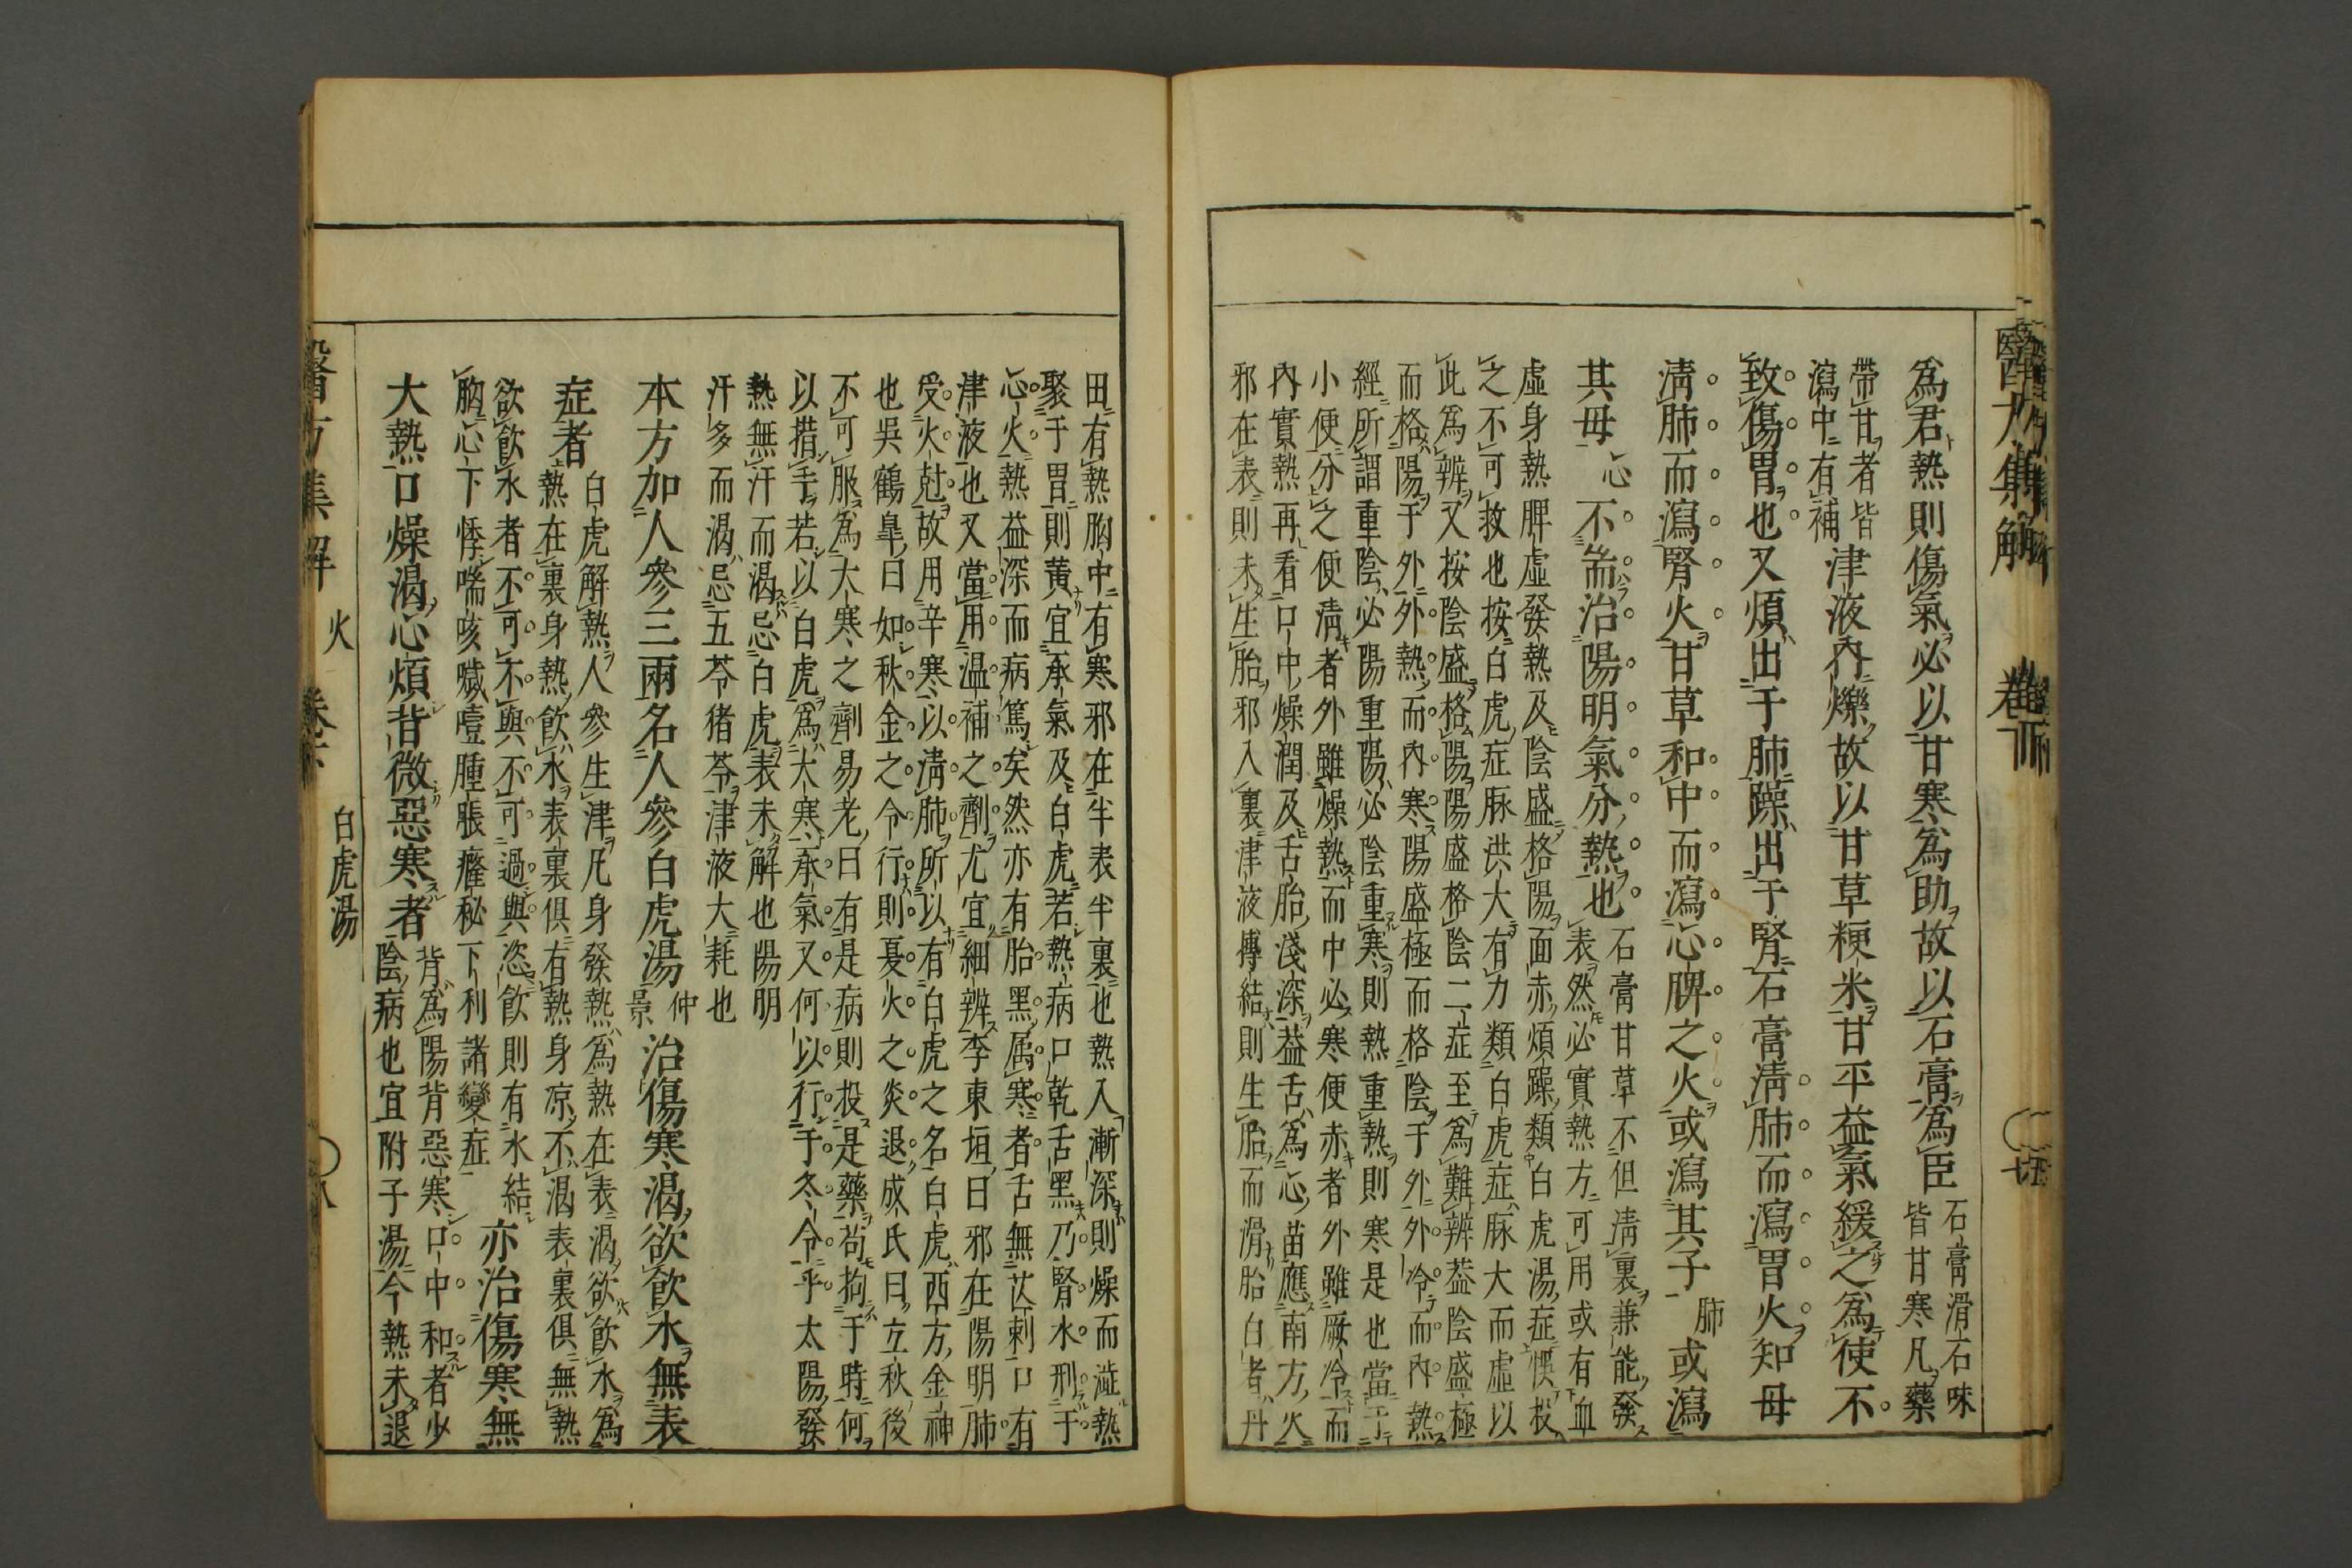 醫方集解
爲君熱則傷氣必以甘寒爲助故以石膏爲臣
石膏滑石味
皆甘寒凡藥
帶甘者皆
瀉中有補
津液内爍故以甘草粳米甘平益氣緩之爲使不
致傷胃也又煩出于肺躁出于腎石膏清肺而瀉胃火知母
清肺而瀉腎火甘草和中而瀉心脾之火或瀉其子肺或瀉
其母心不耑治陽明氣分熱也
石膏甘草不但清裏兼能發
表然必實熱方可用或有血
虛身熱脾虛發熱及陰盛格陽面赤煩躁類白虎湯症悞投
之不可救也按白虎症脉洪大有力類白虎症脉大而虛以
此爲辨又按陰盛格陽陽盛格陰二症至爲難辨葢陰盛極
而格陽于外外熱而内寒陽盛極而格陰于外外冷而内熱
經所謂重陰必陽重陽必陰重寒則熱重熱則寒是也當于
小便分之便清者外雖燥熱而中必寒便赤者外雖厥冷而
内實熱再看口中燥潤及舌胎淺深葢舌爲心苗應南方火
邪在表則未生胎邪入裏津液搏結則生胎而滑胎白者丹
田有熱胸中有寒邪在半表半裏也熱入漸深則燥而澁熱
聚于胃則黄宜承氣及白虎若熱病口乾舌黑乃腎水刑于
心火熱益深而病篤矣然亦有胎黑属寒者舌無芒刺口有
津液也又當用温補之劑尤宜細辨李東垣曰邪在陽明肺
受火尅故用辛寒以清肺所以有白虎之名白虎西方金神
也吳鶴皐曰如秋金之令行則夏火之炎退成氏曰立秋後
不可服爲大寒之劑易老曰有是病則投是藥苟拘于時何
以措手若以白虎爲大寒承氣又何以行于冬令乎太陽發
熱無汗而渴忌白虎表未解也陽明
汗多而渴忌五苓猪苓津液大耗也
本方加人參三兩名人參白虎湯仲景治傷寒渴欲飲水無表
症者
白虎解熱人參生津凡身發熱爲熱在表渴欲飲水爲
熱在裏身熱飲水表裏俱有熱身凉不渴表裏俱無熱
欲飲水者不可不與不可過與恣飲則有水結
胸心下悸喘咳噦噎腫脹癃秘下利諸變症
亦治傷寒無
大熱口燥渴心煩背微惡寒者
背爲陽背惡寒口中和者少
陰病也宜附子湯今熱未退
醫方集解 火 卷下 白虎湯 八